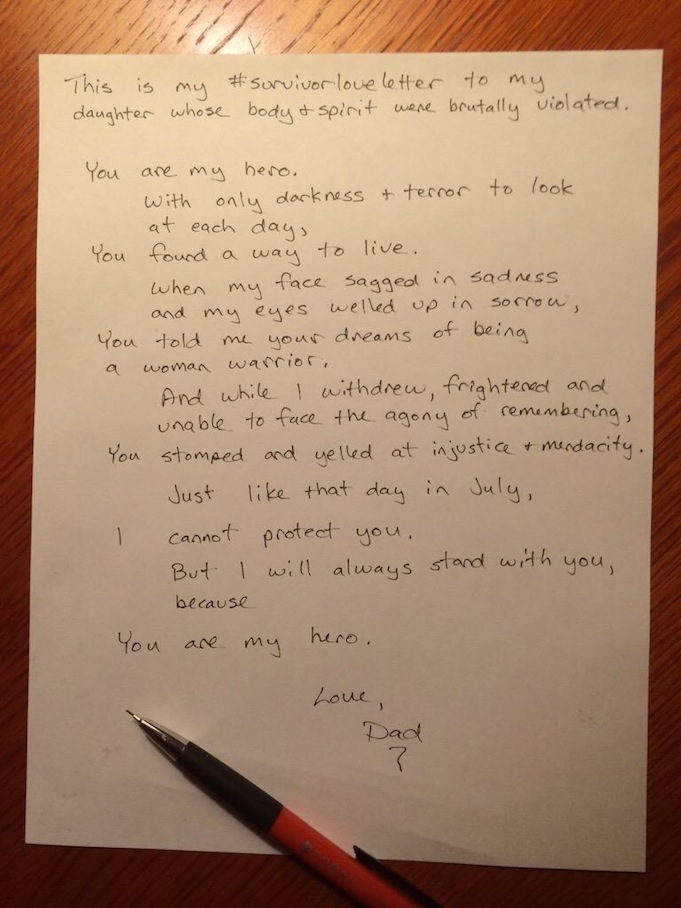 This is my #survivorloveletter to my
daughter whose body + spirit were brutally violated.
You are my hero.
With only darkness + terror to look
at each day,
You found a way to live.
When my face sagged in sadness
and my eyes welled up in sorrow,
You told me your dreams of being
a woman warrior.
And while I withdrew, frightened and
unable to face the agony of remembering,
You stomped and yelled at injustice + mendacity.
Just like that day in July,
I cannot protect you.
But I will always stand with you,
because
You are my hero.
Love,
Dad